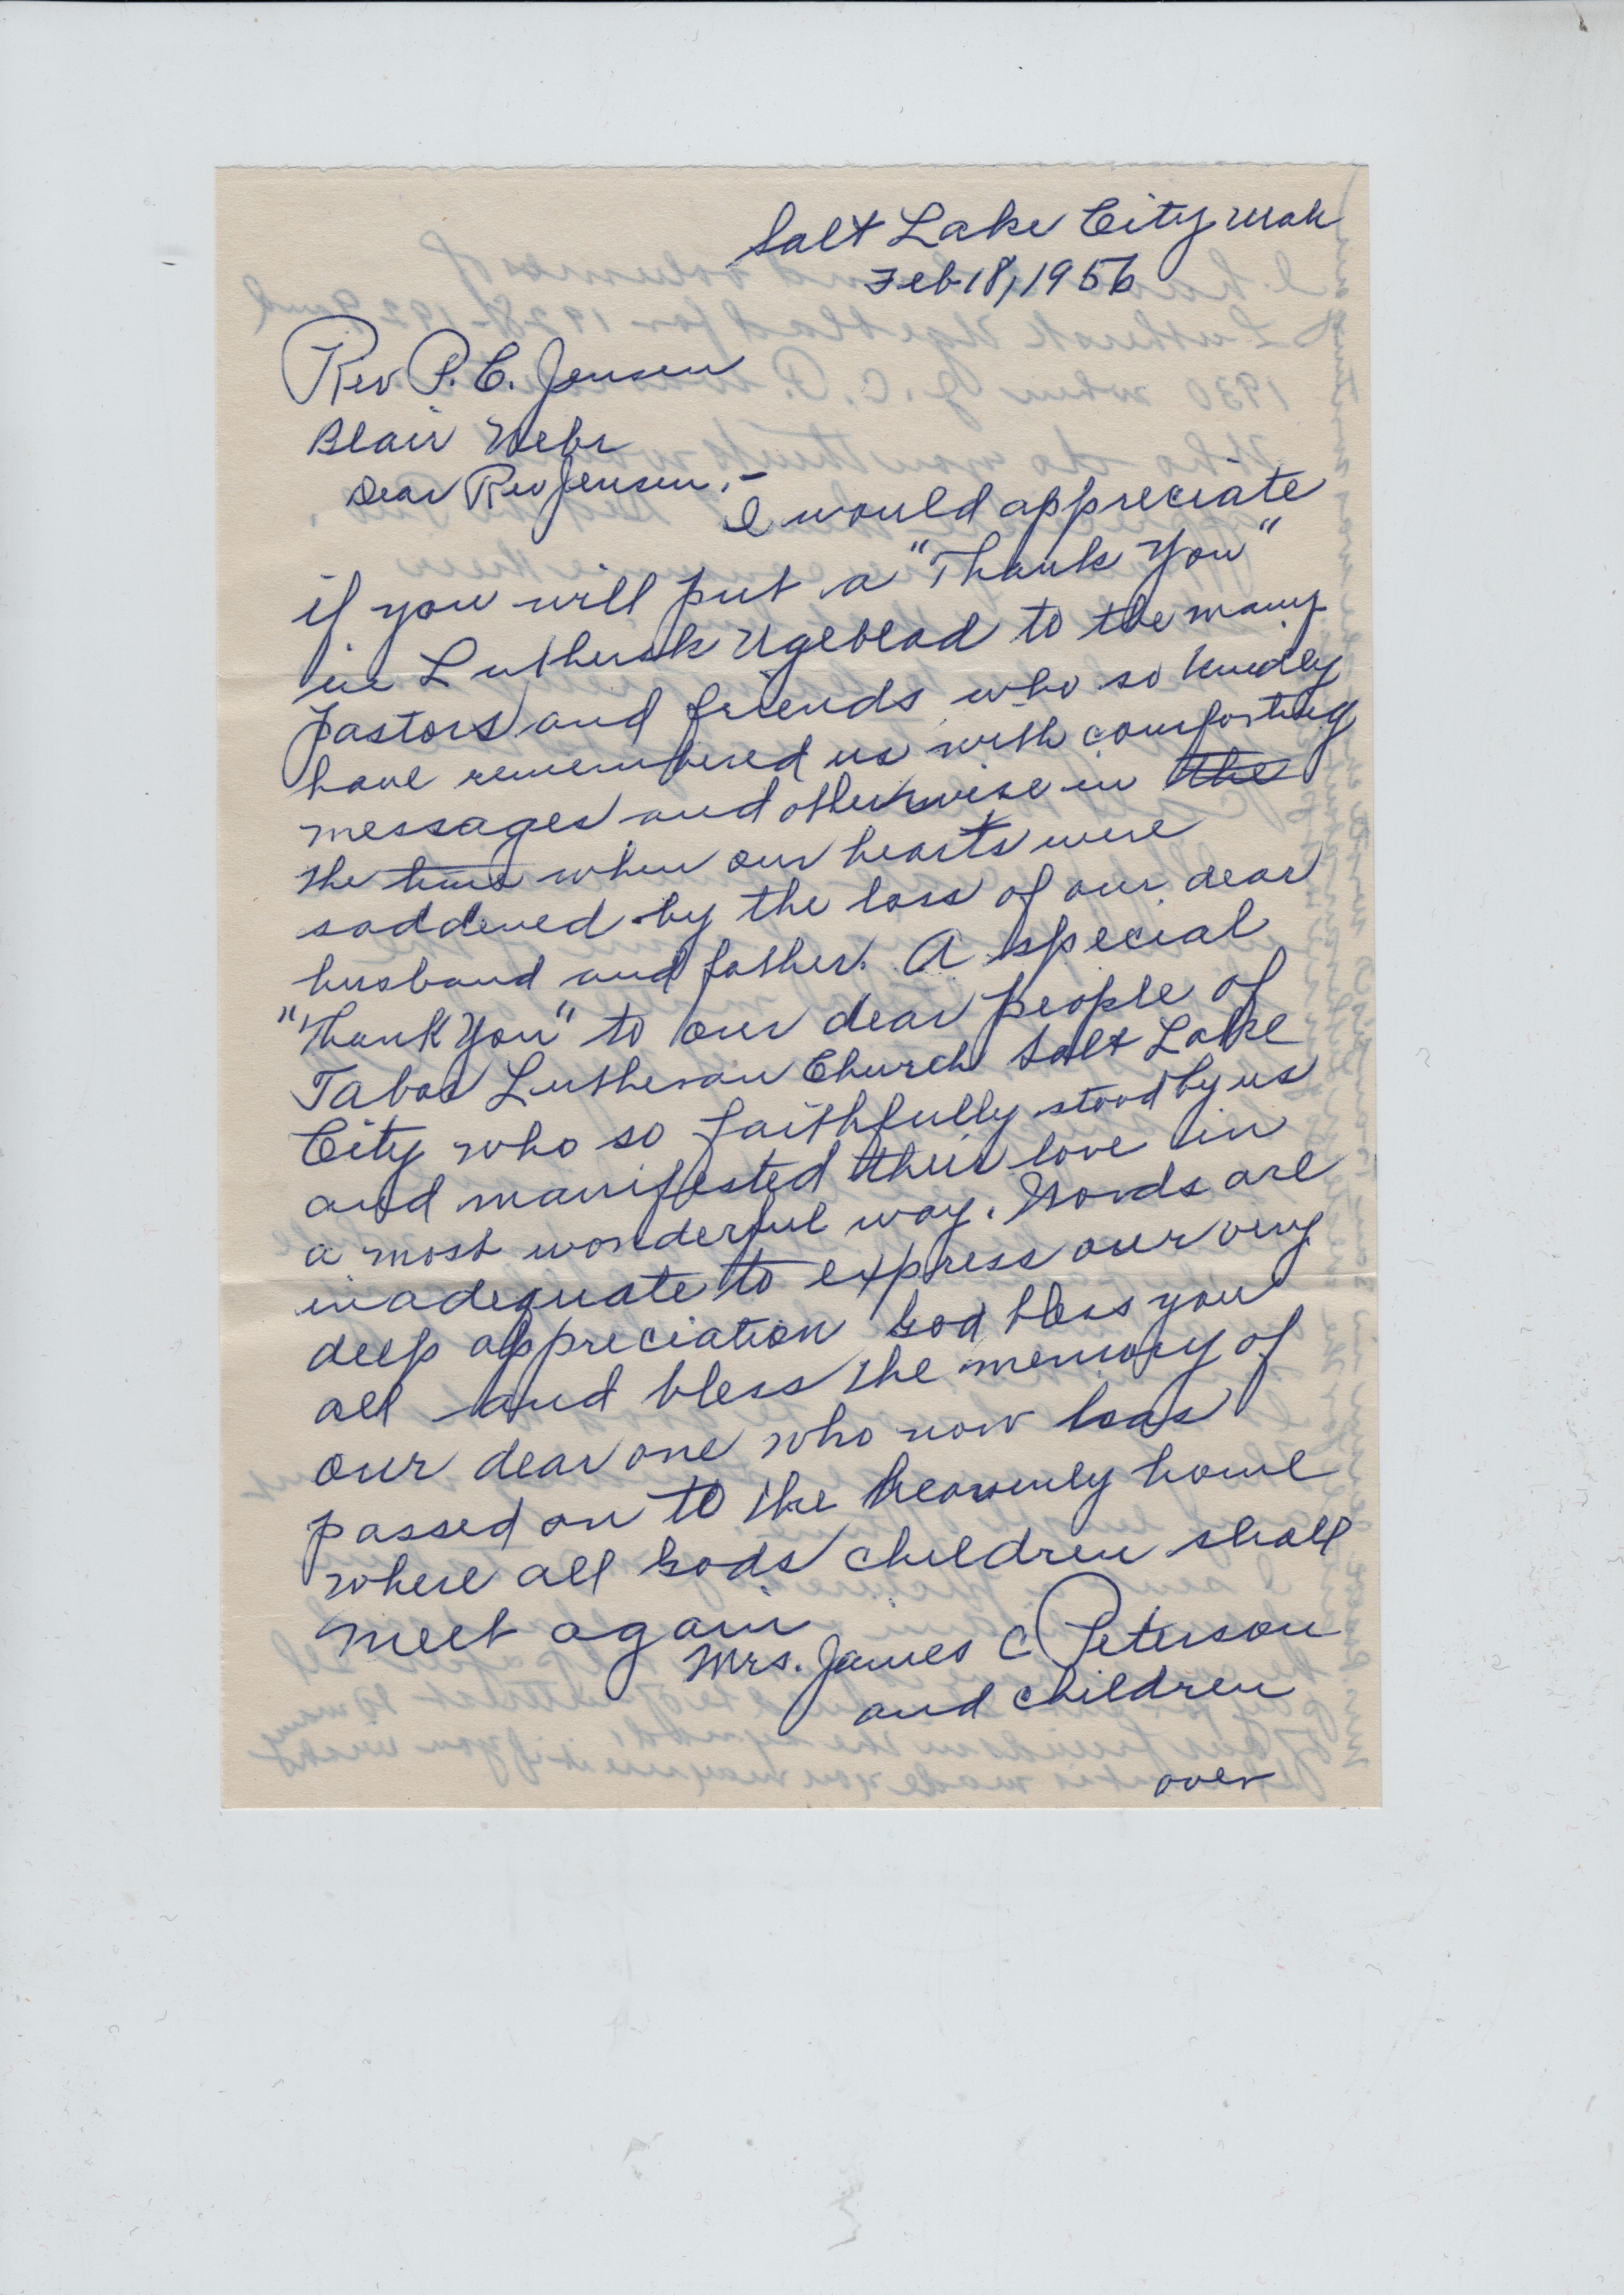 Salt Lake City Utah
Feb 18, 1956
Rev P. C. Jensen
Blair Nebr
Dear Rev Jensen,-
I would appreciate
if you will put a "Thank You"
in Luthersk Ugeblad to the many
pastors and friends who so kindly
have remembered us with comforting
messages and otherwise in the
the time when our hearts were
saddened by the loss of our dear
husband and father. A special
"Thank You" to our dear people of
Tabor Lutheran Church Salt Lake
City who so faithfully stood by us
and manifested their love in
a most wonderful way. Words are
inadequate to express our very
deep appreciation God bless you
all and bless the memory of
our dear one who now has
passed on to the heavenly home
where all Gods children shall
meet again
Mrs. James C Peterson
and children
over